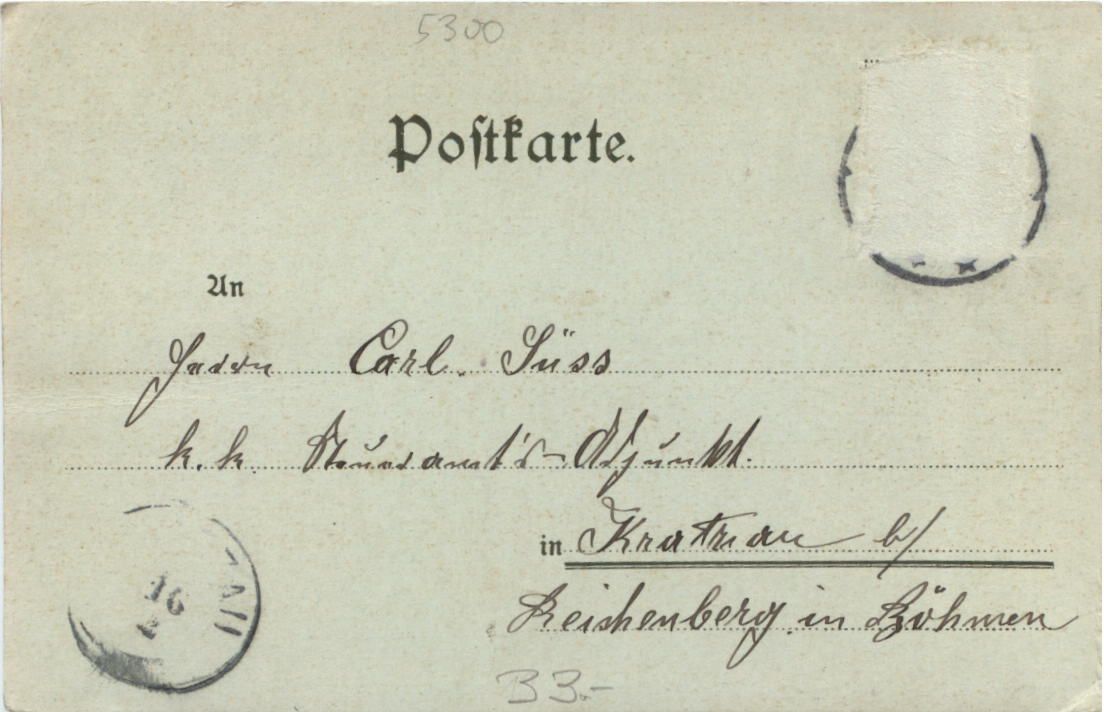 5300
Postkarte.
An
Herrn Carl. Süss
k. k. Steueramts-Adjunkt.
in Kratzau b/
Reichenberg in Böhmen
16
B 3.-